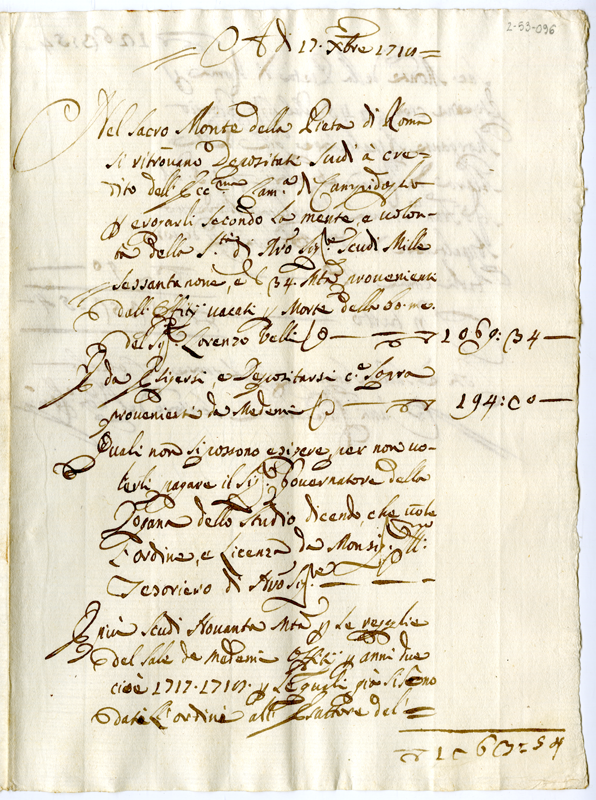 2-53-096
A dì 17. Xbre 1718
Nel Sacro Monte della Pietà di Roma
si ritrovano Depositati Scudi à cre-
dito dell' Eccma Cam.a di Campidoglio
erogarli secondo la mente, e volon-
tà della S.tà di Nro Sig.re Scudi Mille
sessanta nove, e 34. Mta provenienti
dall' Offitij vacati Morte della bo: me:
del Sig.r Lorenzo Belli 1069: 34
da Esigersi e Depositarsi c.e Sopra
provenienti da Medemi 194: 00
Quali non si possono esigere, per non vo-
lerli pagare il Sig.r Governatore della
Dogana dello Studio dicendo, che vuole
l'ordine, e Licenza da Monsig.r Ill.mo
Tesoriero di Nro Sig.re
In più Scudi Novanta Mta le regalie
del Sale de Medemi Offitij anni due
cioè 1717. 1718. quali già si sono
dati l'ordini all' Esattore del